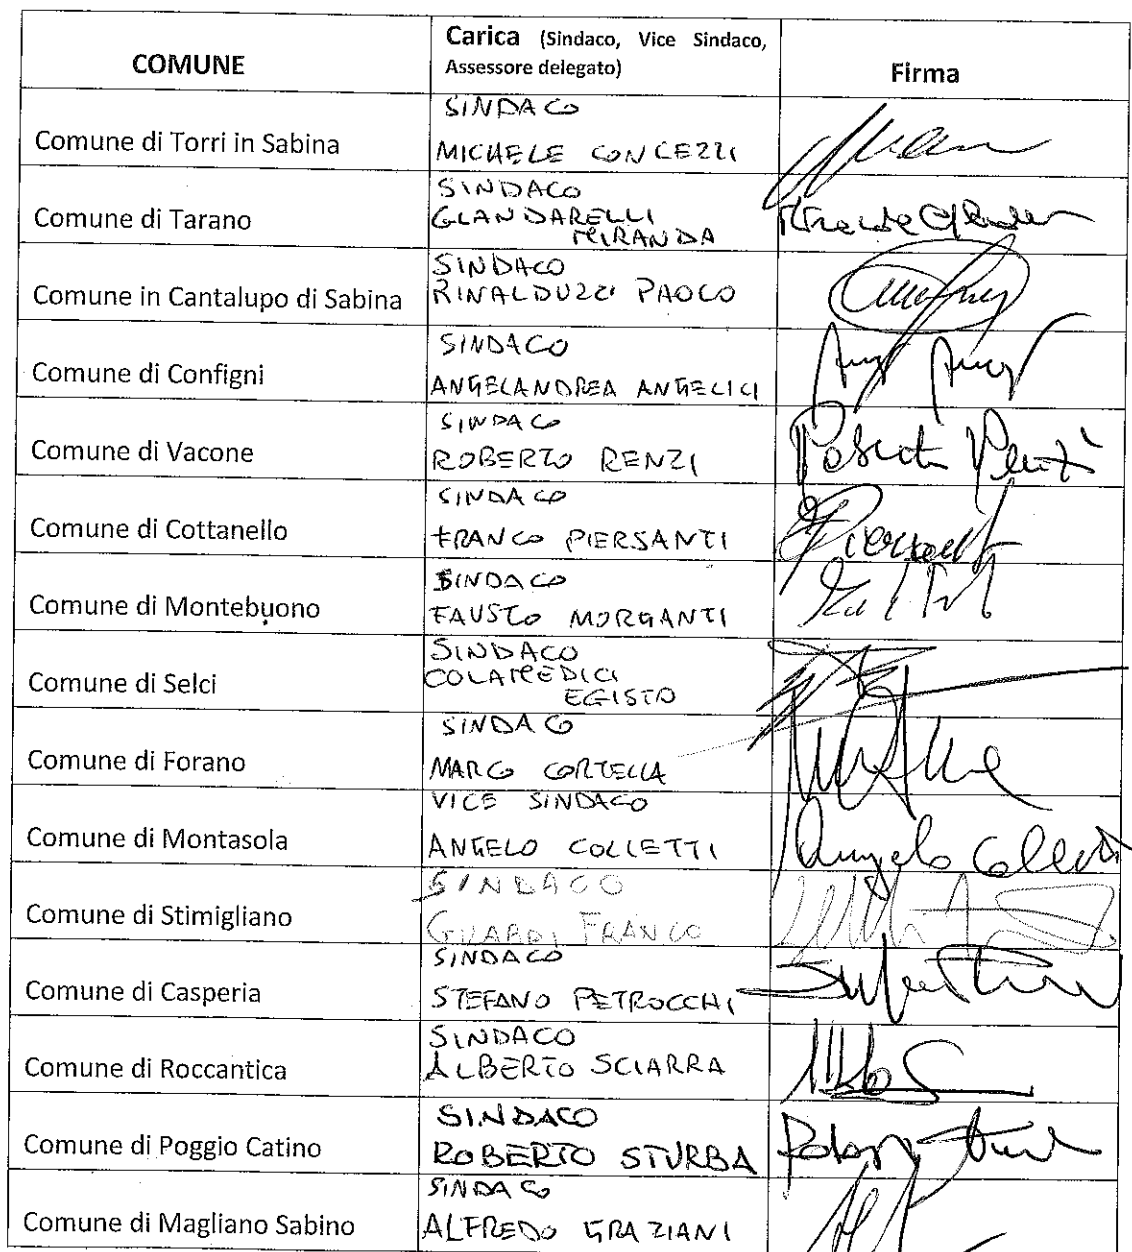 COMUNE
Carica (Sindaco, Vice Sindaco,
Assessore delegato)
Firma
Comune di Torri in Sabina
SINDACO
MICHELE CONCEZZI
Comune di Tarano
SINDACO
GIANDARELLI
MIRANDA
Comune in Cantalupo di Sabina
SINDACO
RINALDUZZI PAOLO
Comune di Configni
SINDACO
ANGELANDREA ANGELICI
Comune di Vacone
SINDACO
ROBERTO RENZI
Comune di Cottanello
SINDACO
FRANCO PIERSANTI
Piersanti
Comune di Montebuono
SINDACO
FAUSTO MORGANTI
Comune di Selci
SINDACO
COLAMEDICI
EGISTO
Comune di Forano
SINDACO
MARCO CORTELLA
Comune di Montasola
VICE SINDACO
ANGELO COLLETTI
Angelo Colletti
Comune di Stimigliano
SINDACO
GILARDI FRANCO
Comune di Casperia
SINDACO
STEFANO PETROCCHI
Comune di Roccantica
SINDACO
ALBERTO SCIARRA
Comune di Poggio Catino
SINDACO
ROBERTO STURBA
Comune di Magliano Sabino
SINDACO
ALFREDO GRAZIANI